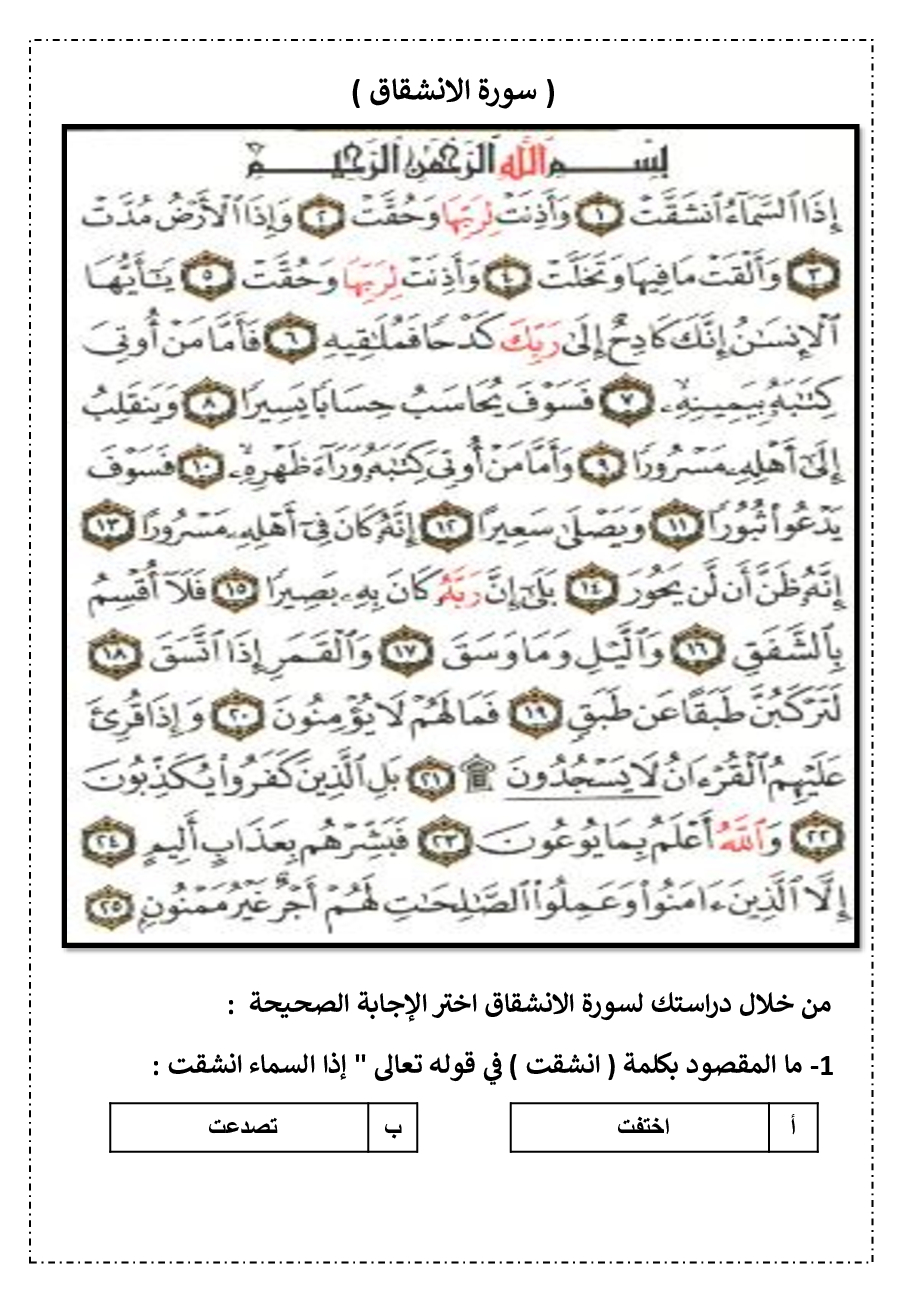 ( سورة الانشقاق )
بِسْمِ ٱللَّهِ ٱلرَّحْمَٰنِ ٱلرَّحِيمِ
إِذَا ٱلسَّمَآءُ ٱنشَقَّتْ ١ وَأَذِنَتْ لِرَبِّهَا وَحُقَّتْ ٢ وَإِذَا ٱلْأَرْضُ مُدَّتْ
٣ وَأَلْقَتْ مَا فِيهَا وَتَخَلَّتْ ٤ وَأَذِنَتْ لِرَبِّهَا وَحُقَّتْ ٥ يَـٰٓأَيُّهَا
ٱلْإِنسَـٰنُ إِنَّكَ كَادِحٌ إِلَىٰ رَبِّكَ كَدْحًا فَمُلَـٰقِيهِ ٦ فَأَمَّا مَنْ أُوتِىَ
كِتَـٰبَهُۥ بِيَمِينِهِۦ ٧ فَسَوْفَ يُحَاسَبُ حِسَابًا يَسِيرًا ٨ وَيَنقَلِبُ
إِلَىٰٓ أَهْلِهِۦ مَسْرُورًا ٩ وَأَمَّا مَنْ أُوتِىَ كِتَـٰبَهُۥ وَرَآءَ ظَهْرِهِۦ ١٠ فَسَوْفَ
يَدْعُوا۟ ثُبُورًا ١١ وَيَصْلَىٰ سَعِيرًا ١٢ إِنَّهُۥ كَانَ فِىٓ أَهْلِهِۦ مَسْرُورًا ١٣
إِنَّهُۥ ظَنَّ أَن لَّن يَحُورَ ١٤ بَلَىٰٓ إِنَّ رَبَّهُۥ كَانَ بِهِۦ بَصِيرًا ١٥ فَلَآ أُقْسِمُ
بِٱلشَّفَقِ ١٦ وَٱلَّيْلِ وَمَا وَسَقَ ١٧ وَٱلْقَمَرِ إِذَا ٱتَّسَقَ ١٨
لَتَرْكَبُنَّ طَبَقًا عَن طَبَقٍ ١٩ فَمَا لَهُمْ لَا يُؤْمِنُونَ ٢٠ وَإِذَا قُرِئَ
عَلَيْهِمُ ٱلْقُرْءَانُ لَا يَسْجُدُونَ ۩ ٢١ بَلِ ٱلَّذِينَ كَفَرُوا۟ يُكَذِّبُونَ
٢٢ وَٱللَّهُ أَعْلَمُ بِمَا يُوعُونَ ٢٣ فَبَشِّرْهُم بِعَذَابٍ أَلِيمٍ ٢٤
إِلَّا ٱلَّذِينَ ءَامَنُوا۟ وَعَمِلُوا۟ ٱلصَّـٰلِحَـٰتِ لَهُمْ أَجْرٌ غَيْرُ مَمْنُونٍۭ ٢٥
من خلال دراستك لسورة الانشقاق اختر الإجابة الصحيحة :
1- ما المقصود بكلمة ( انشقت ) في قوله تعالى " إذا السماء انشقت :
أ اختفت ب تصدعت